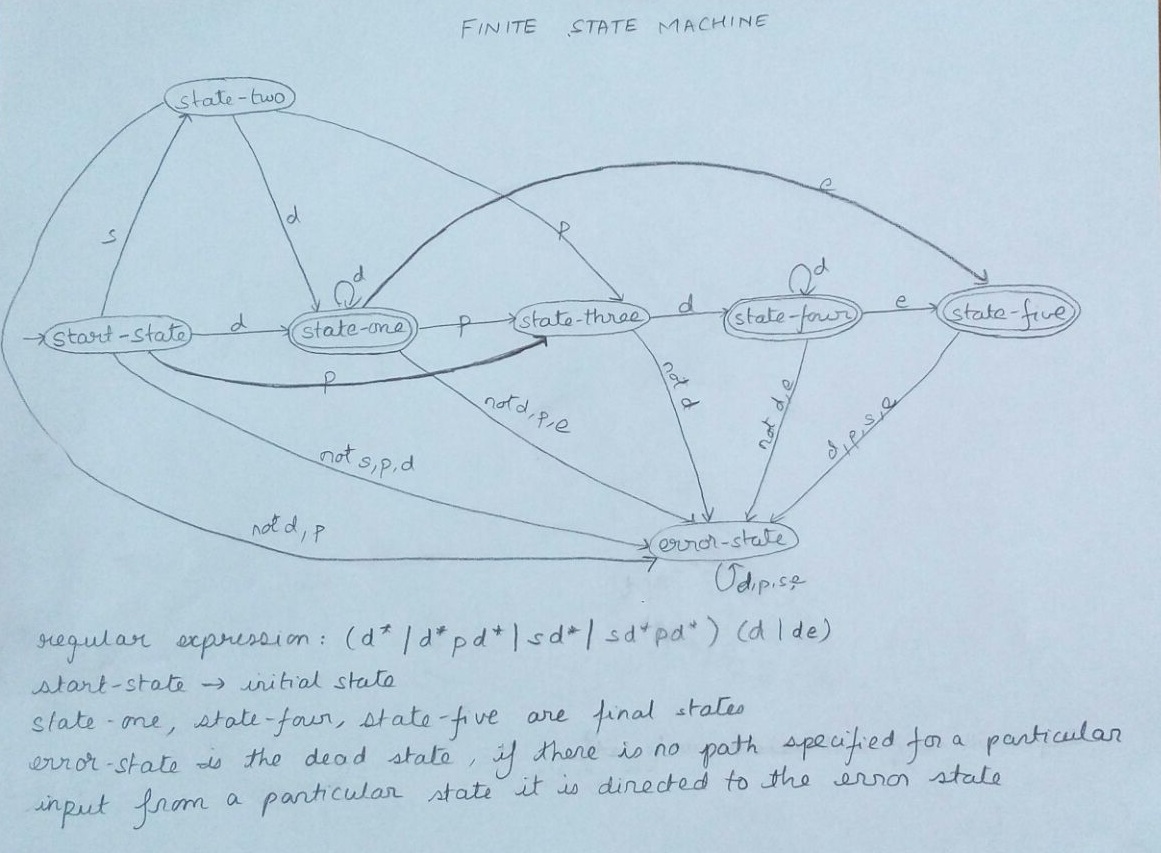 FINITE STATE MACHINE
state-two
s
d
p
e
d
d
start-state
d
state-one
p
state-three
d
state-four
e
state-five
p
not d
not d,e
d,p,s,e
not d,p,e
not s,p,d
not d,p
error-state
d,p,s,e
regular expression: (d* | d*pd* | sd* | sd*pd*) (d | de)
start-state → initial state
state-one, state-four, state-five are final states
error-state is the dead state, if there is no path specified for a particular
input from a particular state it is directed to the error state